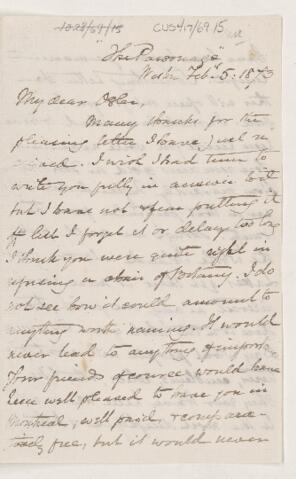 10.29/69/15 CUS417/69/15
"The Parsonage"
Weston Feb. 5. 1873
My dear Osler,
Many thanks for the
pleasing letter I have just re
ceived. I wish I had time to
write you fully in answer to it
but I have not & fear putting it
off lest I forget it or delay too long
I think you were quite right in
refusing a chair of Botany. I do
not see how it could amount to
anything worth naming. It would
never lead to anything of import.
Your friends of course would have
been well pleased to have you in
Montreal, well paid, & comparatively
free, but it would never